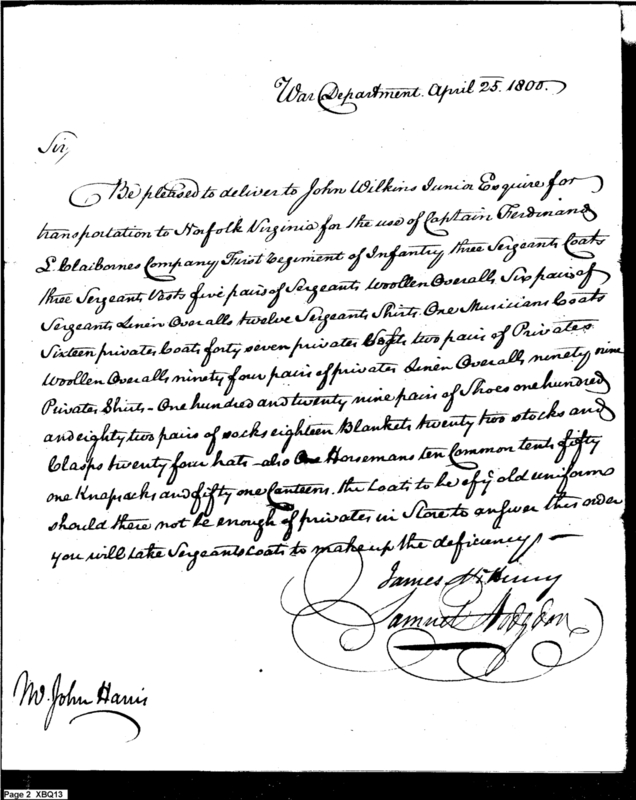 War Department. April 25. 1800.
Sir,
Be pleased to deliver to John Wilkins Junior Esquire for
transportation to Norfolk Virginia for the use of Captain Ferdinand
L. Claibornes Company First Regiment of Infantry three Sergeants Coats
three Sergeants Vests five pairs of Sergeants woollen Overalls Six pairs of
Sergeants Linen Overalls twelve Sergeants Shirts. One Musicians Coats
Sixteen privates Coats forty seven privates Vests two pairs of Privates
Woollen Overalls ninety four pairs of privates Linen Overalls ninety nine
Privates Shirts - One hundred and twenty nine pairs of Shoes one hundred
and eighty two pairs of socks eighteen Blankets twenty two stocks and
Clasps twenty four hats - also One Horsemans ten Common tents fifty
one Knapsacks and fifty one Canteens. the Coats to be of ye old uniform
should there not be enough of privates in Store to answer this order
you will take Sergeants Coats to make up the deficiency -
James McHenry
Samuel Hodgdon
Mr. John Harris
Page 2 XBQ13